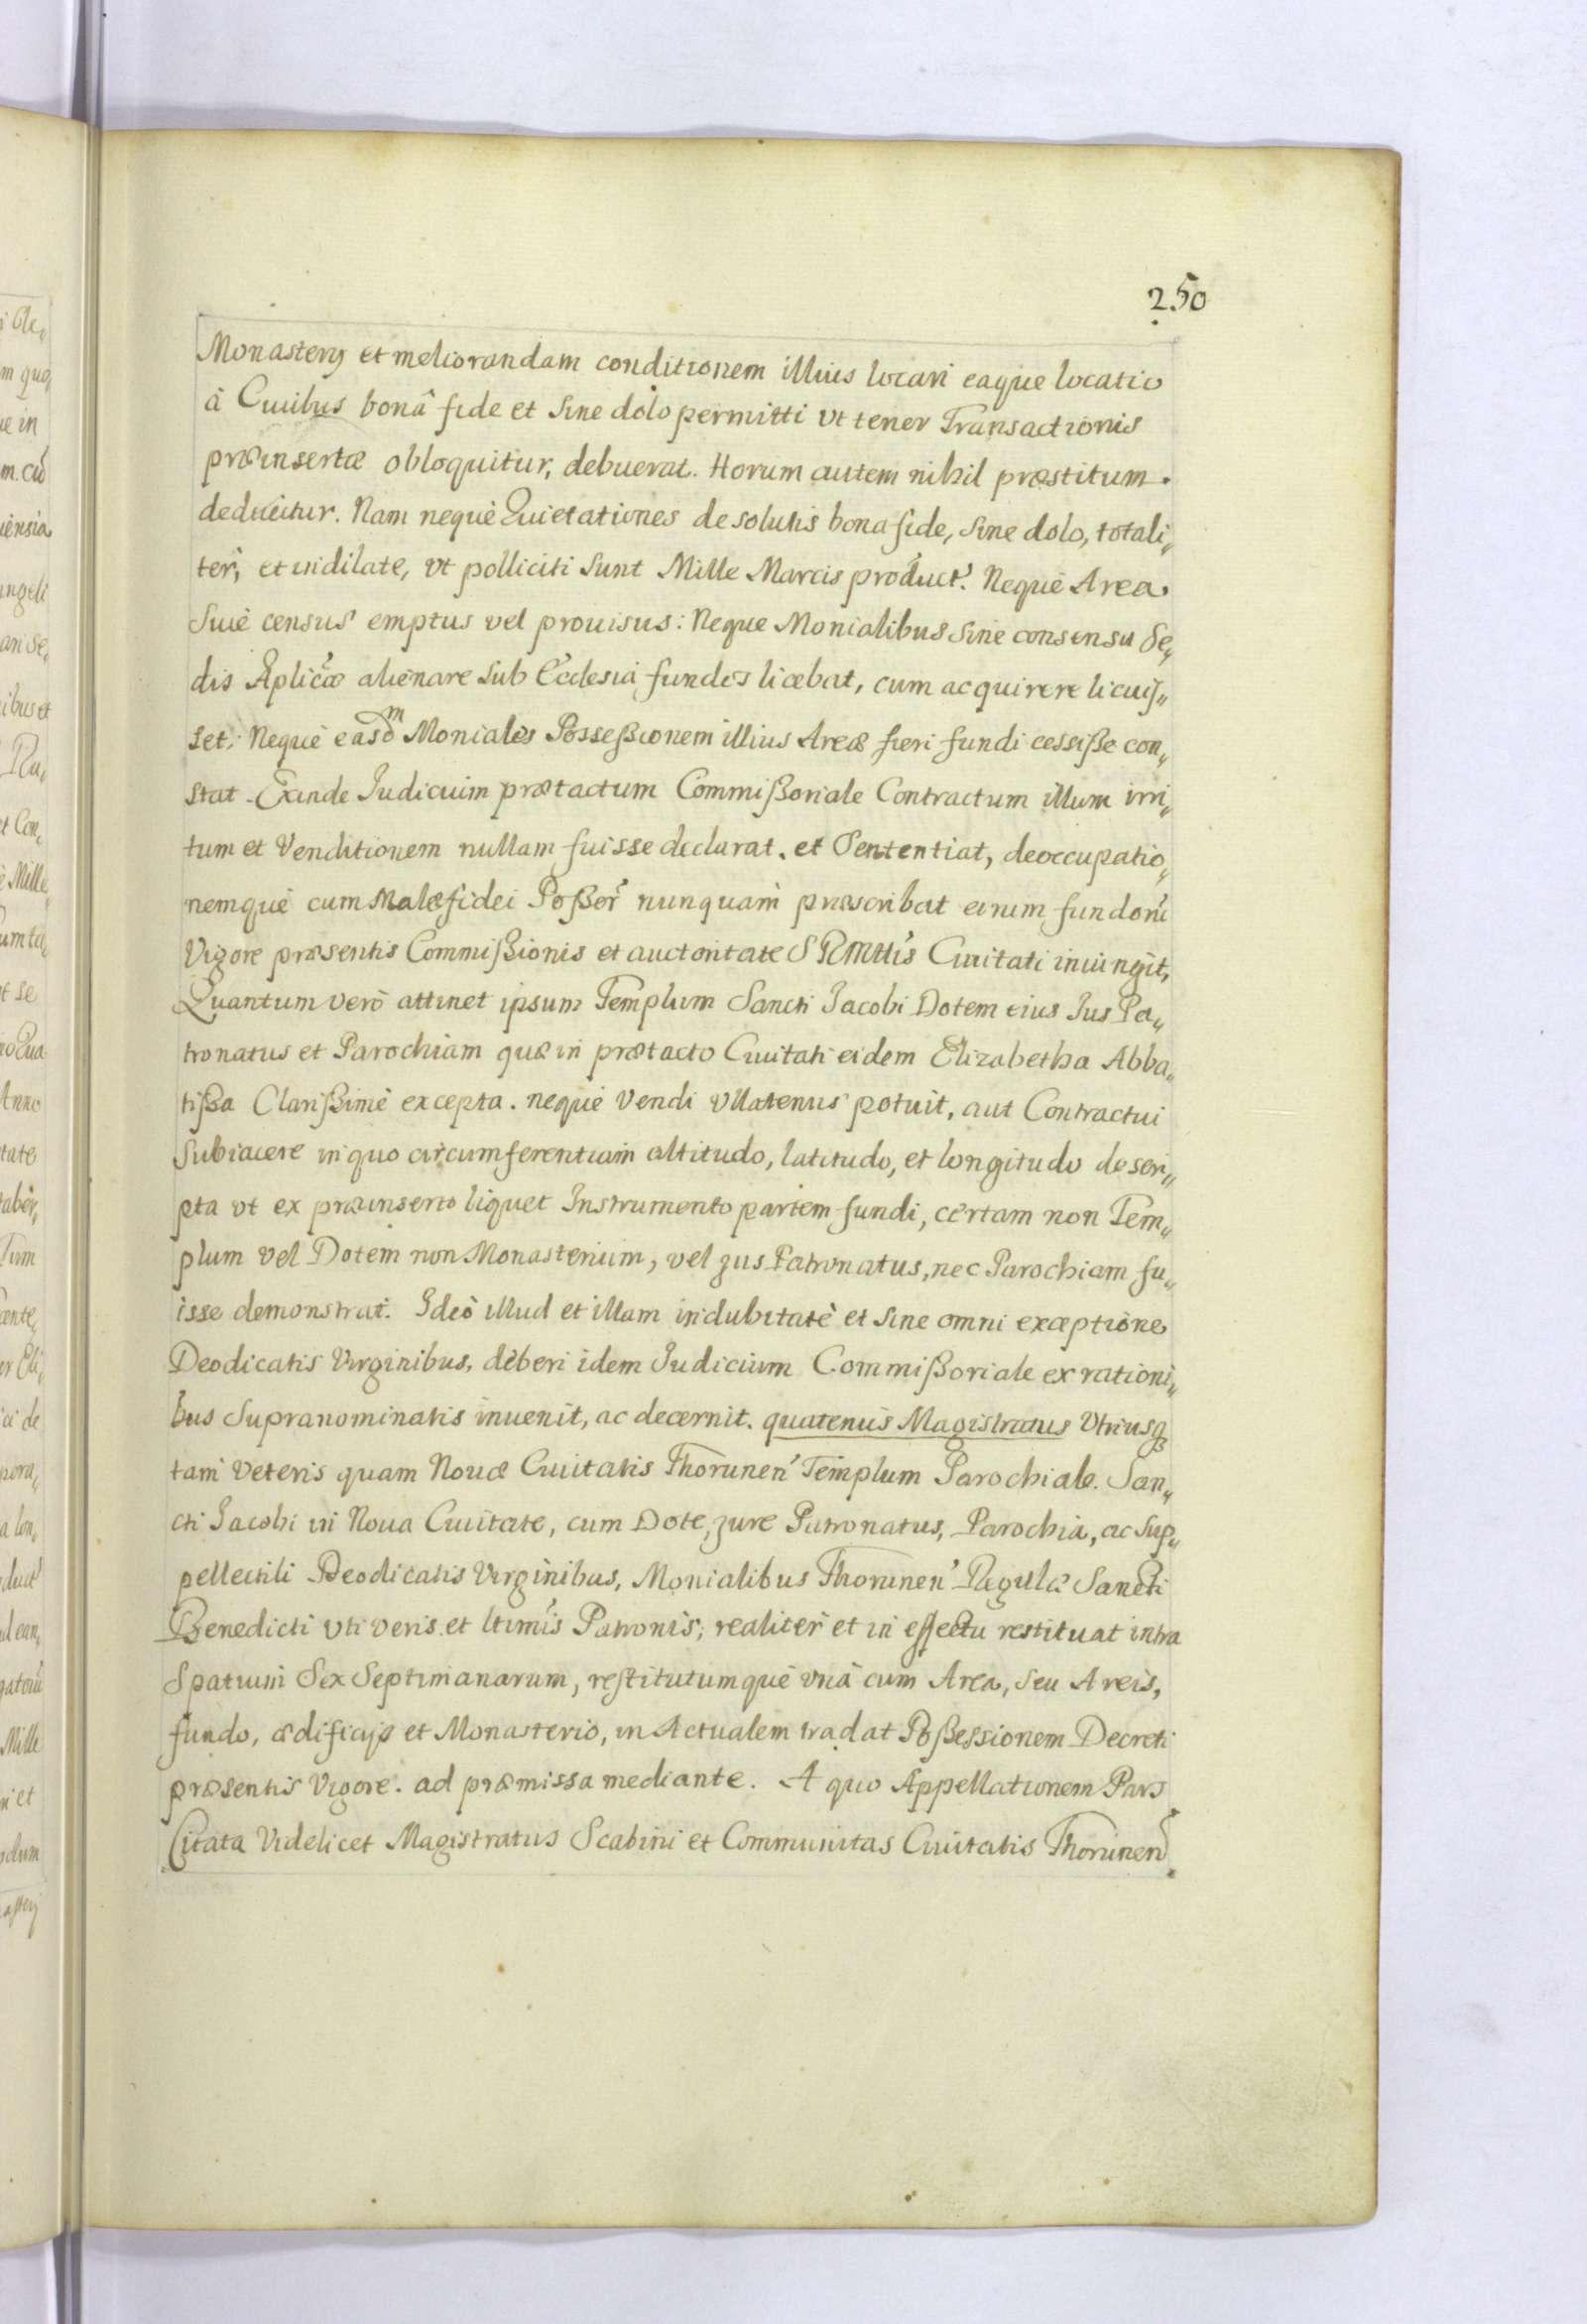 250
Monasterij et meliorandam conditionem illius locari eaque locatio
à Ciuibus bonâ fide et sine dolo permitti vt tenor Transactionis
præinsertæ obloquitur, debuerat. Horum autem nihil præstitum.
deducitur. Nam neque Quietationes de solutis bona fide, sine dolo, totali„
ter, et indilate, vt polliciti sunt Mille Marcis product'. Neque Area
siue census emptus vel prouisus: Neque Monialibus sine consensu Se„
dis Aplicæ alienare sub Ecclesia fundos licebat, cum acquirere licuis„
set. Neque easdm Moniales Possessionem illius Areæ fieri fundi cessisse con„
stat. Exinde Iudicium prætactum Commissoriale Contractum illum irri„
tum et Venditionem nullam fuisse declarat. et Sententiat, deoccupatio„
nemque cum Malæfidei Possor' nunquam præscribat eorum fundorũ
Vigore præsentis Commissionis et auctoritate S R Mttis Ciuitati iniungit,
Quantum verò attinet ipsum Templum Sancti Iacobi Dotem eius Ius Pa„
tronatus et Parochiam quæ in prætacto Ciuitati eidem Elizabetha Abba„
tissa Clarissimè excepta. neque Vendi vllatenus potuit, aut Contractui
Subiacere in quo circumferentiam altitudo, latitudo, et longitudo descri„
pta vt ex præinserto liquet Instrumento partem fundi, certam non Tem„
plum vel Dotem non Monasterium, vel jus Patronatus, nec Parochiam fu„
isse demonstrat. Ideò illud et illam indubitatè et sine omni exceptione
Deodicatis Virginibus, deberi idem Iudicium Commissoriale ex rationi„
bus supranominatis inuenit, ac decernit. quatenus Magistratus Vtriusq
tam Veteris quam Nouæ Ciuitatis Thorunen' Templum Parochiale. San„
cti Iacobi in Noua Ciuitate, cum Dote, jure Patronatus, Parochia, ac Sup„
pellectili Deodicatis Virginibus, Monialibus Thorunen' Regulæ Sancti
Benedicti vti veris et ltimis Patronis, realiter et in effectu restituat intra
Spatium Sex Septimanarum, restitutumque vnà cum Area, seu Areis,
fundo, ædificijs et Monasterio, in Actualem tradat Possessionem Decreti
præsentis Vigore. ad præmissa mediante. A quo Appellationem Pars
Citata Videlicet Magistratus Scabini et Communitas Ciuitatis Thorunen'